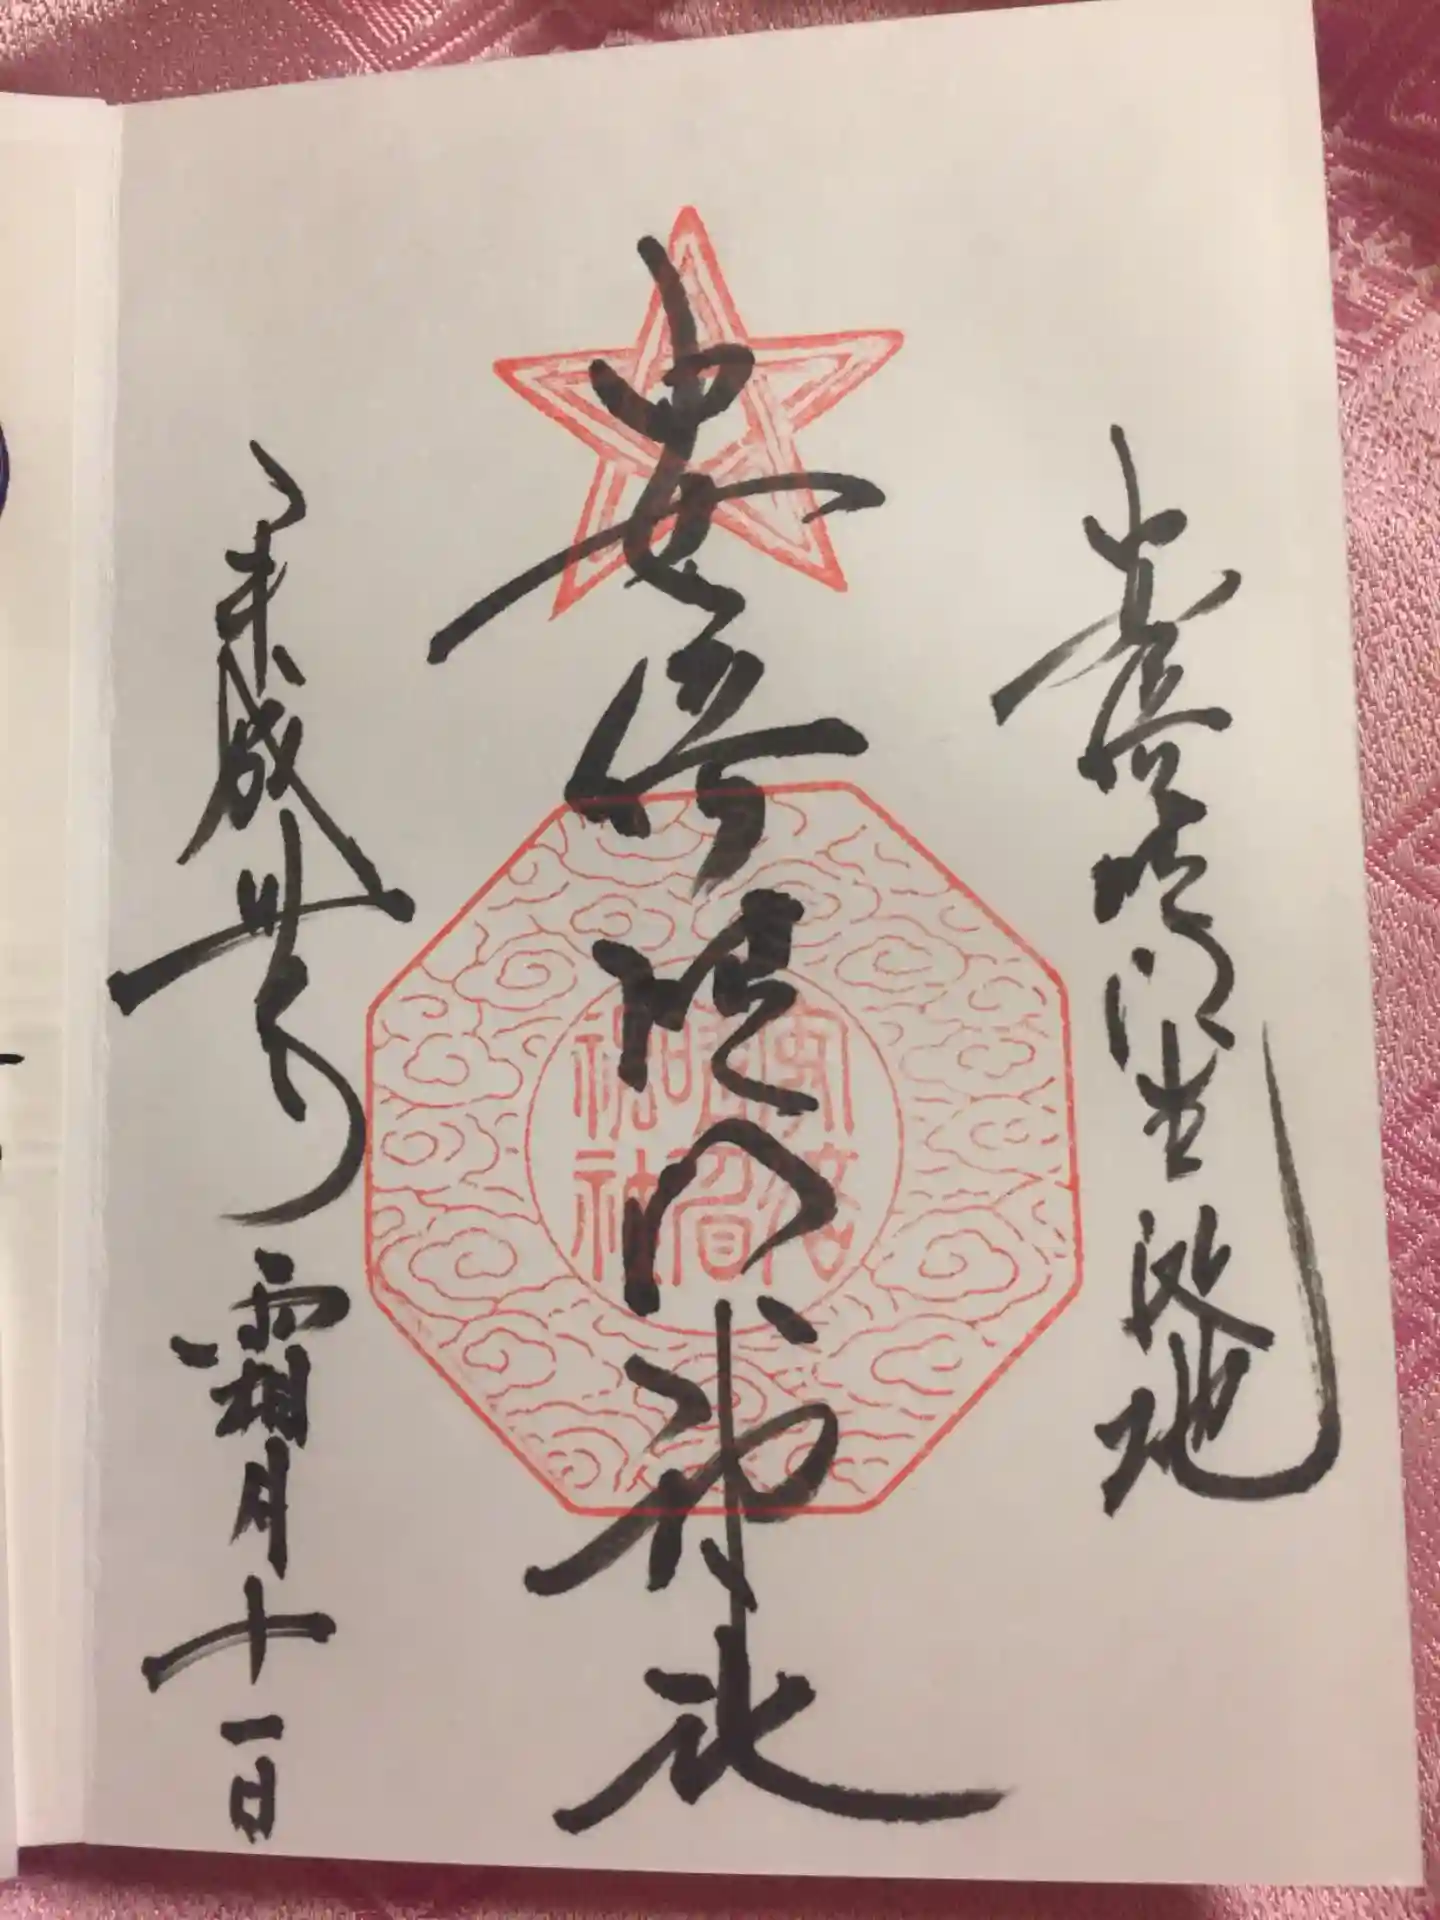 安倍晴明生誕地
安倍晴明神社
平成丗年霜月十一日
安倍
晴明
神社